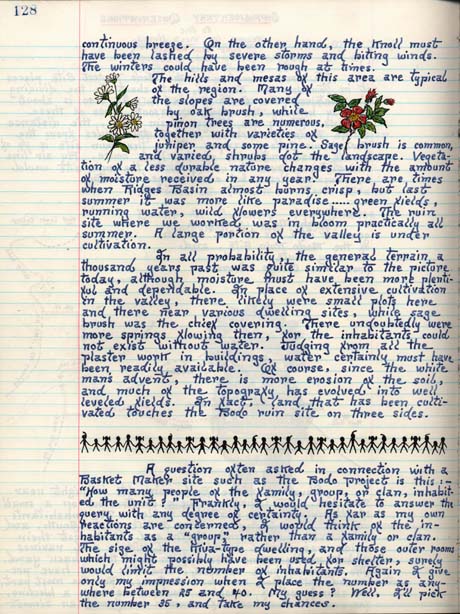 128
continuous breeze. On the other hand, the knoll must
have been lashed by severe storms and biting winds.
The winters could have been rough at times.
The hills and mesas of this area are typical
of the region. Many of
the slopes are covered
by oak brush, while
pinon trees are numerous,
together with varieties of
juniper and some pine. Sage brush is common,
and varied, shrubs dot the landscape. Vegeta-
tion of a less durable nature changes with the amount
of moisture received in any year. There are times
when Ridges Basin almost burns crisp, but last
summer it was more like paradise ..... green fields,
running water, wild flowers everywhere. The ruin
site where we worked, was in bloom practically all
summer. A large portion of the valley is under
cultivation.
In all probability, the general terrain a
thousand years past was quite similar to the picture
today, although moisture must have been more plenti-
ful and dependable. In place of extensive cultivation
in the valley, there likely were small plots here
and there near various dwelling sites, while sage
brush was the chief covering. There undoubtedly were
more springs flowing then, for the inhabitants could
not exist without water. Judging from all the
plaster work in buildings, water certainly must have
been readily available. Of course, since the white
man's advent, there is more erosion of the soil,
and much of the topografy has evolved into well
leveled fields. In fact, land that has been culti-
vated touches the Bodo ruin site on three sides.
A question often asked in connection with a
Basket Maker site such as the Bodo project is this:-
"How many people of the family, group, or clan, inhabit-
ed the unit?" Frankly, I would hesitate to answer the
query with any degree of certainty. As far as my own
reactions are concerned, I would think of the in-
habitants as a "group" rather than a family or clan.
The size of the kiva-type dwelling, and those outer rooms
which might possibly have been used for shelter, surely
would limit the number of inhabitants. Again I give
only my impression when I place the number as any-
where between 25 and 40. My guess? Well, I'll pick
the number 35, and take my chances.